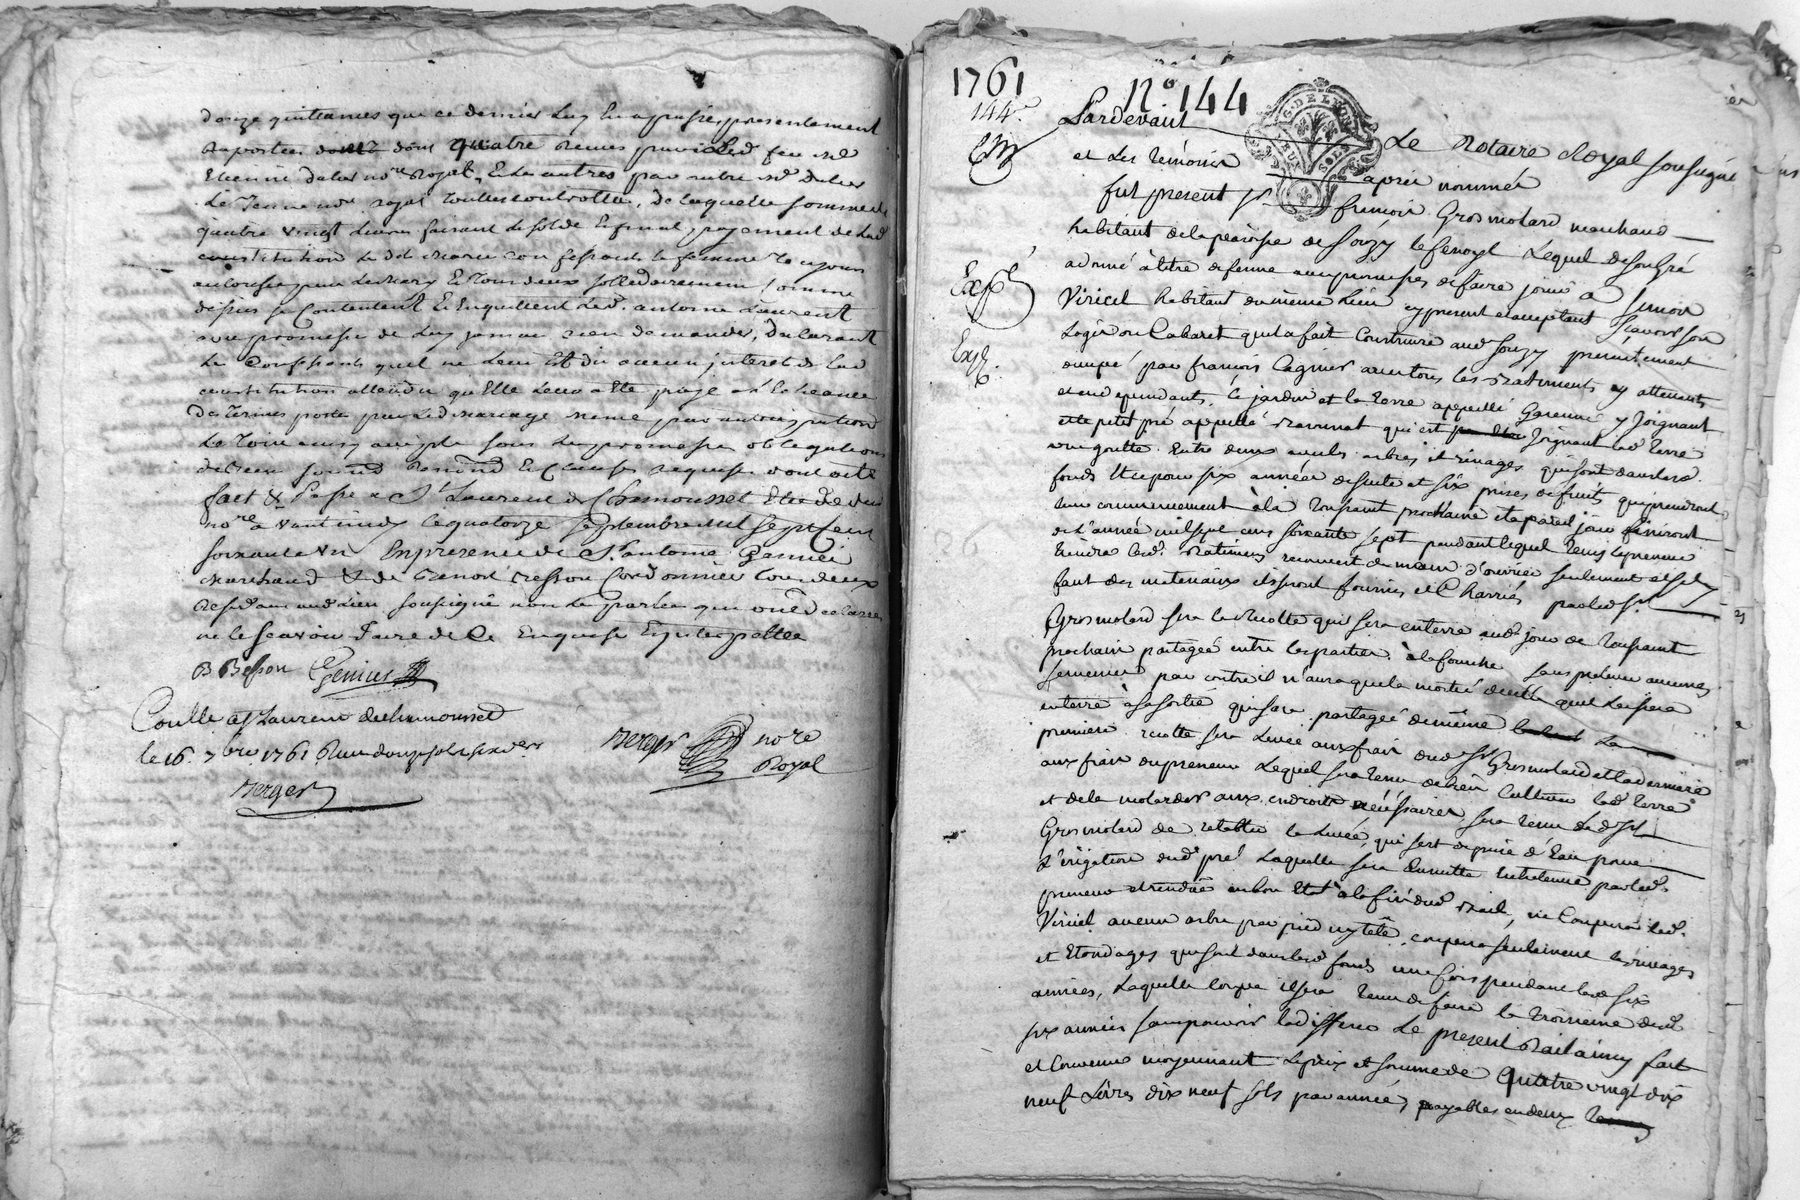 douze quittances que ce dernier luy en a presentement
raporteé dont quatre
Etienne Dalier no.re Royal, & les autres par autre
Le Jeune no.re royal toutes controllee, de laquelle somme de
quatre vingt Livres faisant le solde & final payement de lad
constitution
autorisée par son Mary & tous deux sollidairement comme
dessus se Contentent & En quittent led. antoine Laurent
avec promesse de luy jamais rien demander, declarant
Le Confessants quil ne leur Est du aucun jnteret de lad
constitution attendu qu'Elle leur a Ete payé a l'echeance
des Termes porté par led mariage meme par anticipation
Le tout ainsy accepté sous les promesses obligations
& Clauses requises dont acte
fait & Passé a St Laurent de Chamousset Etude du
no.re avant midy le quatorze septembre mil sept cent
soixante & un En presence de Sr antoine
Marchand & de Benoit Besson Cordonnier tous deux
residant aud Lieu soussigné non les parties qui ont declaré
ne le scavoir faire de Ce Enquise & jnterpellée
B Besson Genier
Conllé a St Laurent de chamousset
le 16. 7bre 1761. Reçu douze sols six den.rs
Berger
Berger no.re
Royal
1761
No. 144
144e
Pardevant Le Notaire Royal soussigné
et Les temoins apres nommés
fut present sr. francois Grosmolard marchand
habitant de la paroisse de Souzy le Lequel de son gré
a donné à titre de ferme avec promesses de faire jouir à
Viricel habitant du même Lieu cy present et acceptant scavoir son
Logis ou Cabaret quil a fait Construire aud Souzy presentement
occupé par françois Cagnier avec tous les Batiments y attenants
et en dependants, le jardin et la terre appellé Garenne y joignant
et le petit pré appellé qui est joignant lad terre
une goutte Entre deux avec les arbres et rivages qui sont dans led.
fonds Et ce pour six années de suite et six prises de fruits qui prendront
leur commencement à la toussaint prochaine et a pareil jour finiront
de l'année mil sept cens soixante sept pendant lequel tems le preneur
tiendra les d. Batiments recouvert de main d'ouvrier seulement
faut des materiaux ils seront fournis et Charriés par led Sr
Grosmolard sera la recolte qui sera en terre aud jour de toussaint
prochain partagée entre les parties à la fourche sans prelever aucunes
semences par contre il n'aura que la moitié de celle quil Laissera
en terre à sa sortie qui sera partagée de même La
premiere recolte sera Levée aux frais dud Sr Grosmolard et la derniere
aux frais du preneur Lequel sera tenu de bien Cultiver lad terre
et de la aux endroits nécessaires sera tenu led Sr
Grosmolard de retablir la Levée, qui sert de prise d'Eau pour
L'irigation dud pré Laquelle sera Ensuitte entretenue par led.
preneur et rendue en bon Etat à la fin dud Bail, ne Coupera led.
Viricel aucun arbre par pied ny tête, coupera seulement les rivages
et Etondages qui sont dans led fonds une fois pendant led six
années, Laquelle Coupe il sera tenu de faire la troisieme desd
six années sans pouvoir la differer Le present Bail ainsy fait
et Convenu moyennant Le prix et somme de quatre vingt dix
neuf Livres dix neuf sols par année, payables en deux